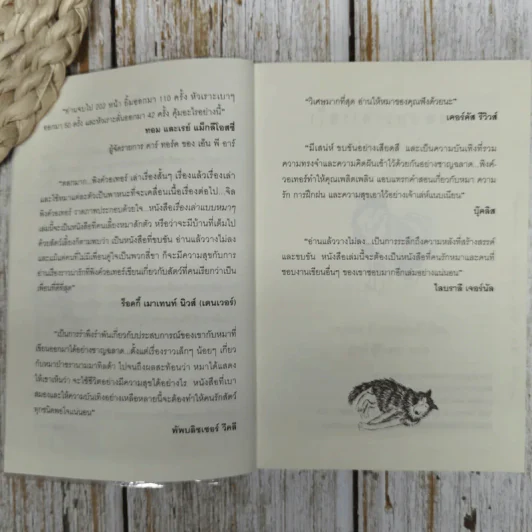 "อ่านจบไป 202 หน้า ยิ้มออกมา 110 ครั้ง หัวเราะเบาๆ
ออกมา 50 ครั้ง และหัวเราะลั่นออกมา 42 ครั้ง คุ้มอะไรอย่างนี้"
ทอม และเรย์ แม็กลิโอสซี
ผู้จัดรายการ คาร์ ทอร์ค ของ เอ็น พี อาร์
"ตลกมาก...พิงค์วอเทอร์ เล่าเรื่องสั้นๆ เรื่องแล้วเรื่องเล่า
และใช้หมาแต่ละตัวเป็นพาหนะที่จะเคลื่อนเนื้อเรื่องต่อไป...จิล
พิงค์วอเทอร์ วาดภาพประกอบด้วยใจ...หนังสือเรื่องเล่าแบบหมาๆ
เล่มนี้จะเป็นหนังสือที่คนเลี้ยงหมาสักตัว หรือว่าจะมีบ้านที่เต็มไป
ด้วยสัตว์เลี้ยงก็ตามพบว่า เป็นหนังสือที่ขบขัน อ่านแล้ววางไม่ลง
และแม้แต่คนที่ไม่มีเพื่อนคู่ใจเป็นพวกสี่ขา ก็จะมีความสุขกับการ
อ่านเรื่องราวน่ารักที่พิงค์วอเทอร์เขียนเกี่ยวกับสัตว์ที่คนเรียกว่าเป็น
เพื่อนที่ดีที่สุด"
ร็อคกี้ เมาเทนท์ นิวส์ (เดนเวอร์)
"เป็นการรำพึงรำพันเกี่ยวกับประสบการณ์ของเขากับหมาที่
เขียนออกมาได้อย่างชาญฉลาด...ตั้งแต่เรื่องราวเล็กๆ น้อยๆ เกี่ยว
กับหมาป่า ไปจนถึงผลสะท้อนว่า หมาได้แสดง
ให้เขาเห็นว่า จะใช้ชีวิตอย่างมีความสุขได้อย่างไร หนังสือที่เบา
สมองและให้ความบันเทิงอย่างเหลือหลายนี้จะต้องทำให้คนรักสัตว์
ทุกชนิดพอใจแน่นอน"
พับพลิชเชอร์ วีคลี
"วิเศษมากที่สุด อ่านให้หมาของคุณฟังด้วยนะ"
เคอร์คัส รีวิวส์
"มีเสน่ห์ ขบขันอย่างเสียดสี และเป็นความบันเทิงที่รวม
ความทรงจำและความคิดฝันเข้าไว้ด้วยกันอย่างชาญฉลาด...พิงค์-
วอเทอร์ทำให้คุณเพลิดเพลิน แอบแทรกคำสอนเกี่ยวกับหมา ความ
รัก การฝึกฝน และความสุขเอาไว้อย่างเจ้าเล่ห์แนบเนียน"
บุ๊คลิส
"อ่านแล้ววางไม่ลง...เป็นการระลึกถึงความหลังที่สร้างสรรค์
และขบขัน หนังสือเล่มนี้จะต้องเป็นหนังสือที่คนรักหมาและคนที่
ชอบงานเขียนอื่นๆ ของเขาชอบมากอีกเล่มอย่างแน่นอน"
ไลบรารี เจอร์นัล